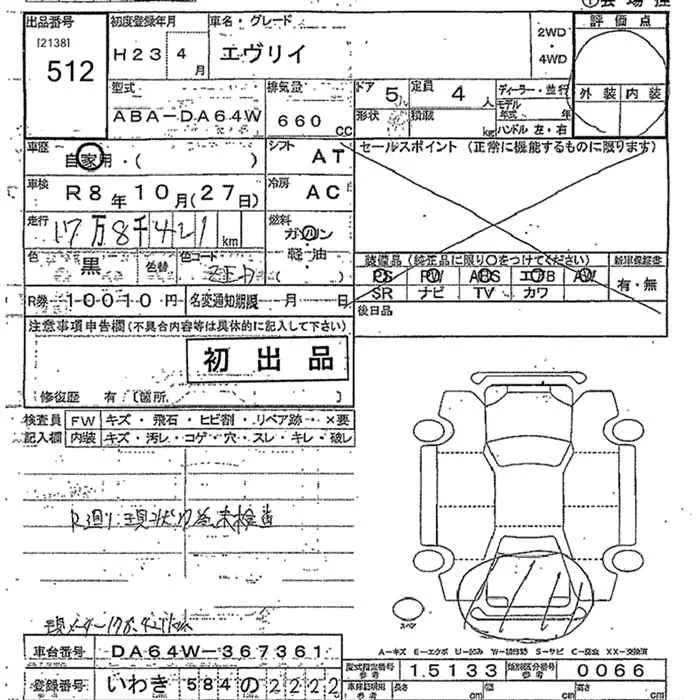 出品番号
[2138]
512
初度登録年月
H23 4月
車名・グレード
エヴリイ
2WD
・
4WD
評価点
外装 内装
型式
ABA-DA64W
排気量
660 CC
ドア 5
定員 4人
形状
積載 kg
ディーラー・並行
モデル
年式 年
ハンドル 左・右
車歴
自家用・( )
シフト
AT
セールスポイント (正常に機能するものに限ります)
車検
R8年10月(27日)
冷房
AC
走行
17万8千421km
燃料
ガソリン
軽・油
( )
色
黒
色替
色コード
装備品 (純正品に限り○をつけてください)
新車保証書
PS PW ABS エアB AW
SR ナビ TV カワ
有・無
R券 10010円
名変通知期限 月 日
後日品
注意事項申告欄(不具合内容等は具体的に記入して下さい)
初出品
修復歴 有 (箇所
検査員
記入欄
FW キズ・飛石・ヒビ割・リペア跡・×要
内装 キズ・汚レ・コゲ・穴・スレ・キレ・破レ
スペア
A-キズ E-エクボ U-凹み W-補修跡 S-サビ C-腐食 XX-交換済
車台番号
DA64W-367361
型式指定番号
参考
15133
類別区分番号
参考
0066
登録番号
いわき 584 の 2222
車体詳細
参考
長さ cm 幅 cm 高さ cm